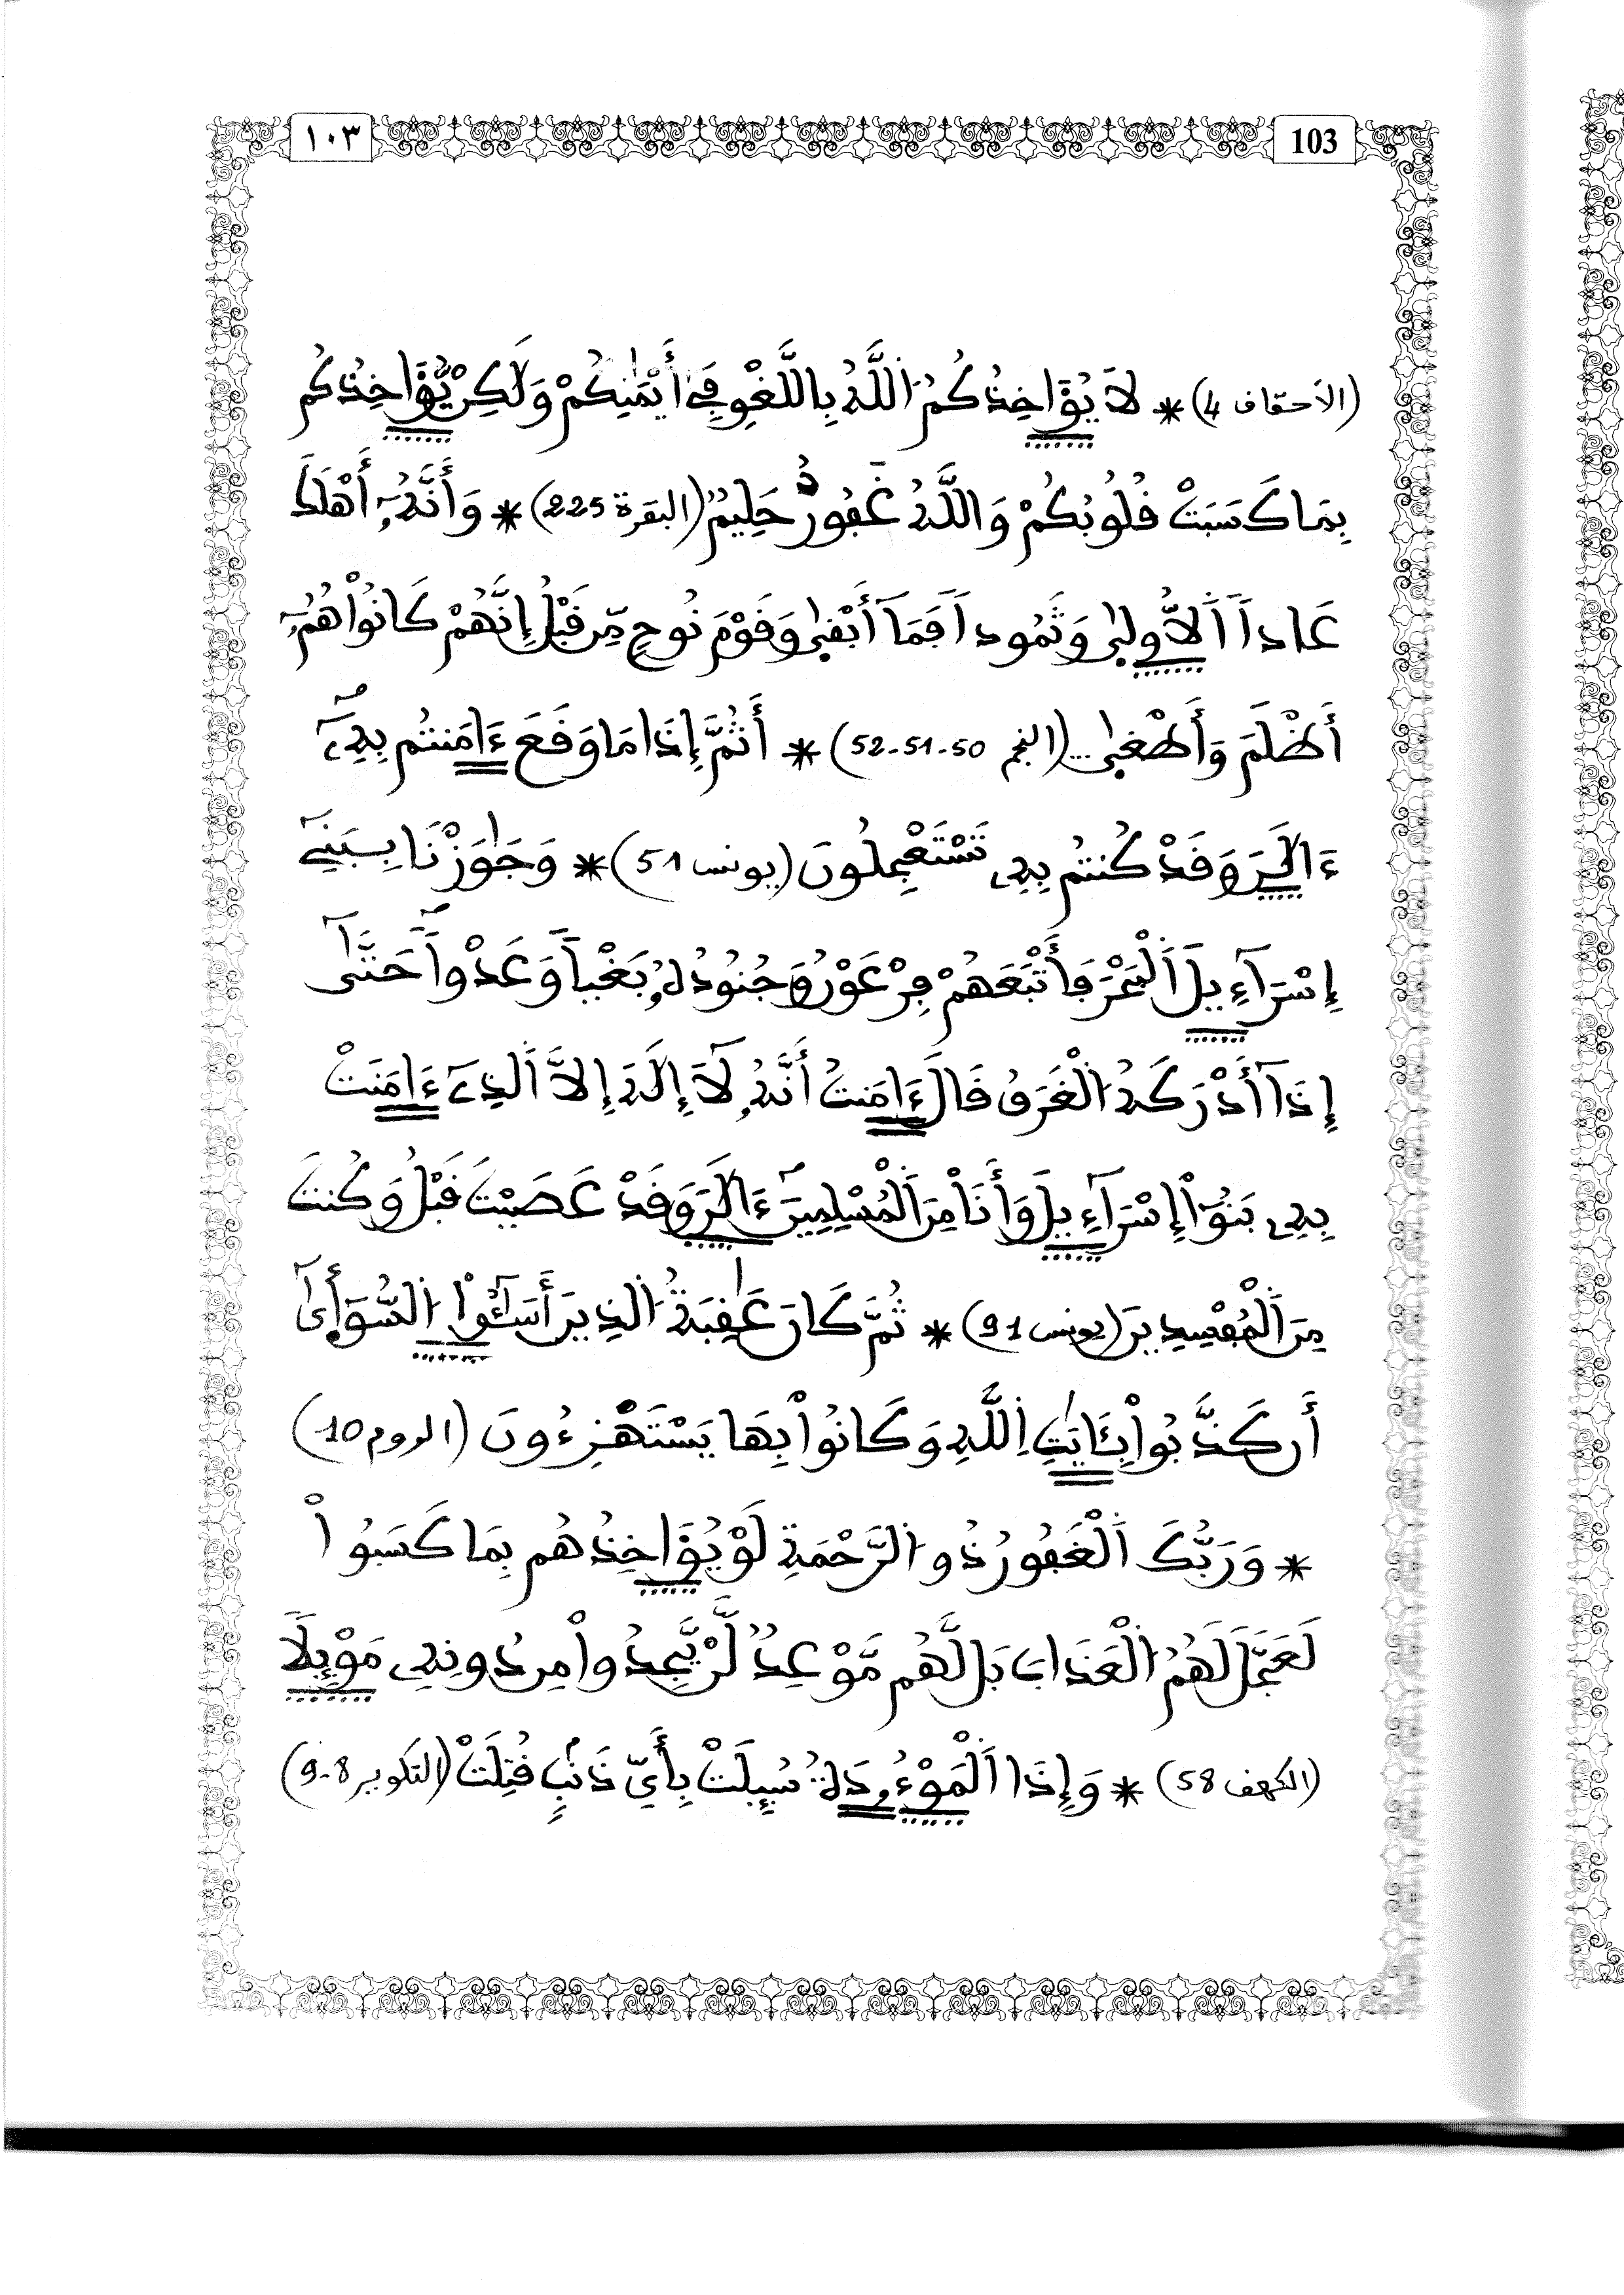 ١٠٣ 103
(الأحقاف 4) * لَا يُؤَاخِذُكُمُ اللَّهُ بِاللَّغْوِ فِي أَيْمَٰنِكُمْ وَلَٰكِنْ يُّؤَاخِذُكُم
بِمَا كَسَبَتْ قُلُوبُكُمْ وَاللَّهُ غَفُورٌ حَلِيمٌ (البقرة 225) * وَأَنَّهُۥٓ أَهْلَكَ
عَاداً اَلُاولَىٰ وَثَمُوداً فَمَآ أَبْقَىٰ وَقَوْمَ نُوحٍ مِّن قَبْلُ إِنَّهُمْ كَانُواْ هُمُۥٓ
أَظْلَمَ وَأَطْغَىٰ... (النجم 50-51-52) * أَثُمَّ إِذَا مَا وَقَعَ ءَامَنتُم بِهِۦٓ
ءَآلَٰنَ وَقَدْ كُنتُم بِهِۦ تَسْتَعْجِلُونَ (يونس 51) * وَجَٰوَزْنَا بِبَنِيٓ
إِسْرَآءِيلَ اَلْبَحْرَ فَأَتْبَعَهُمْ فِرْعَوْنُ وَجُنُودُهُۥ بَغْياً وَعَدْواً حَتَّىٰٓ
إِذَآ أَدْرَكَهُ الْغَرَقُ قَالَ ءَامَنتُ أَنَّهُۥ لَآ إِلَٰهَ إِلَّا اَلذِيٓ ءَامَنَتْ
بِهِۦ بَنُوٓاْ إِسْرَآءِيلَ وَأَنَاْ مِنَ اَلْمُسْلِمِينَ ءَآلَٰنَ وَقَدْ عَصَيْتَ قَبْلُ وَكُنتَ
مِنَ اَلْمُفْسِدِينَ (يونس 91) * ثُمَّ كَانَ عَٰقِبَةُ الذِينَ أَسَٰٓـُٔواْ السُّوٓأَىٰٓ
أَن كَذَّبُواْ بِـَٔايَٰتِ اِللَّهِ وَكَانُواْ بِهَا يَسْتَهْزِءُونَ (الروم 10)
* وَرَبُّكَ اَلْغَفُورُ ذُو الرَّحْمَةِ لَوْ يُؤَاخِذُهُم بِمَا كَسَبُواْ
لَعَجَّلَ لَهُمُ الْعَذَابَ بَل لَّهُم مَّوْعِدٌ لَّنْ يَّجِدُواْ مِن دُونِهِۦ مَوْئِلًا
(الكهف 58) * وَإِذَا اَلْمَوْءُۥدَةُ سُئِلَتْ بِأَيِّ ذَنۢبٍ قُتِلَتْ (التكوير 8-9)